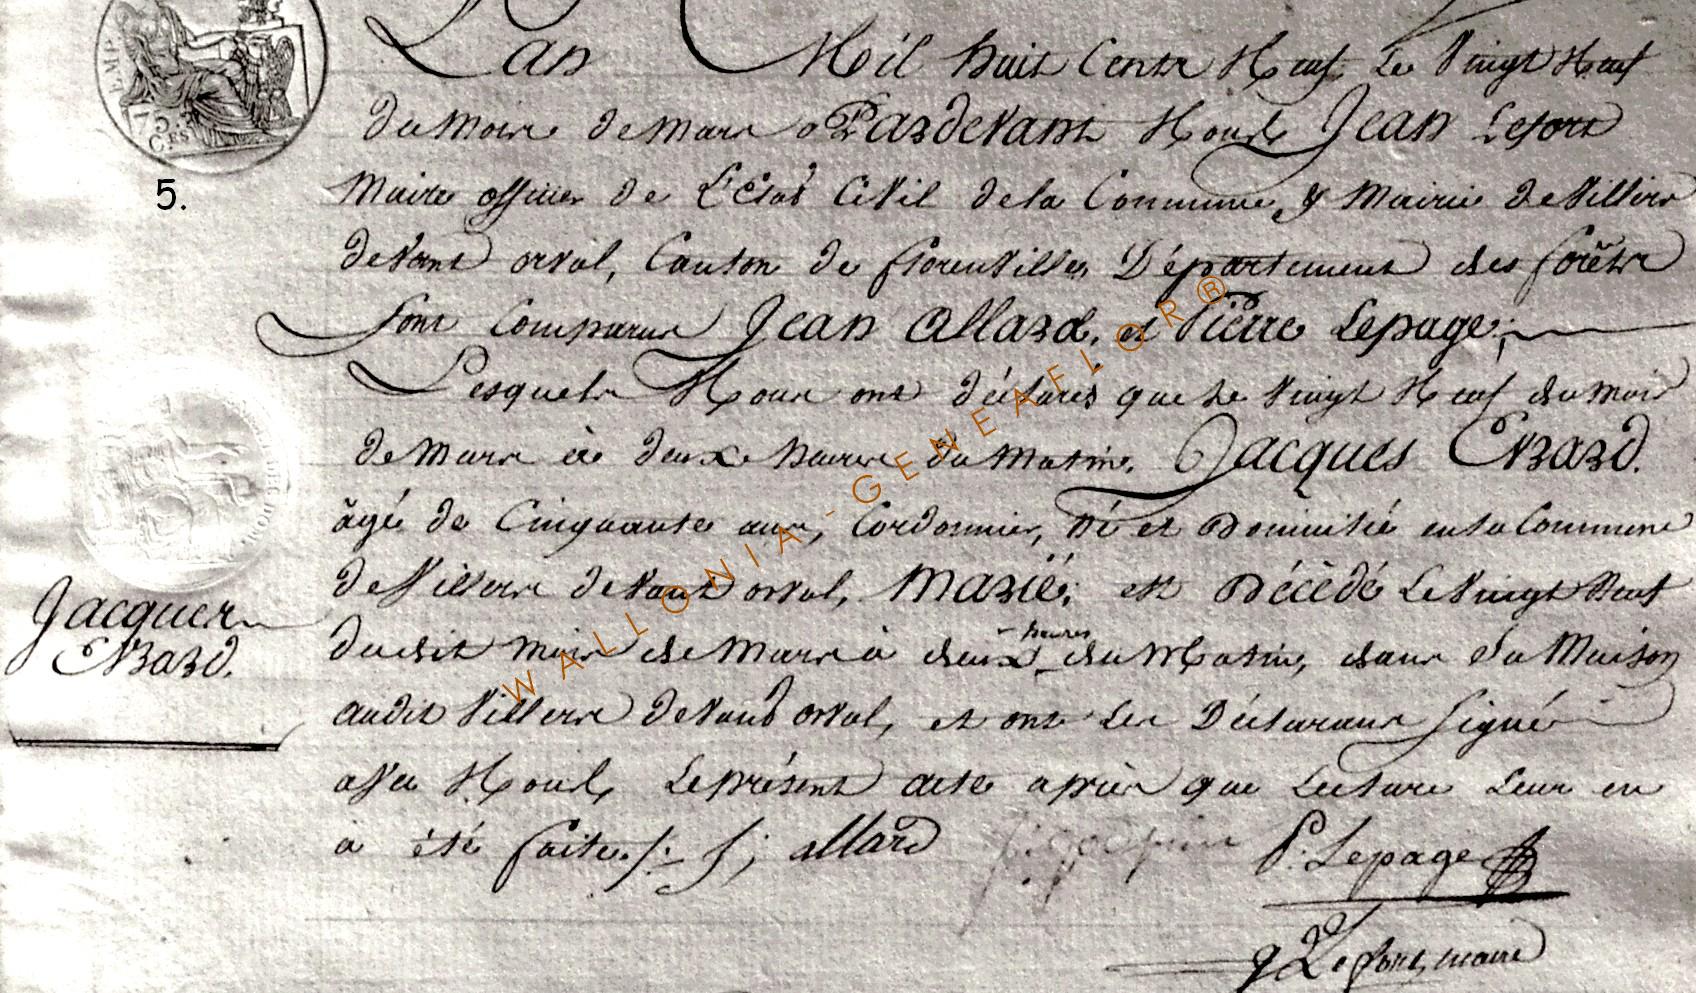 EMP
75
CES
5.
L'an Mil huit Cents Neuf Le Vingt Neuf
du mois de mars Pardevant Nous Jean Lefort
Maire officier de L'Etat Civil de la Commune & Mairie de Villers
devant orval, Canton de florenville, Département des forêts
Sont Comparus Jean Allard, et Pierre Lepage;
Lesquels Nous ont déclarés que Le Vingt Neuf du mois
de mars à deux heures du matin, Jacques Evrard.
âgé de Cinquante ans, Cordonnier, né et Domicilié en la Commune
de Villers devant orval, Marié; est Décédé Le Vingt Neuf
Jacques
Evrard.
du dit mois de mars à deux heures du Matin, dans Sa Maison
audit Villers devant orval, et ont Les Déclarans Signé
avec Nous, Le présent acte après que Lecture Leur en
à été faite./. J; allard P. Lepage
J Lefort, maire
WALLONIA-GENEAFLOR®